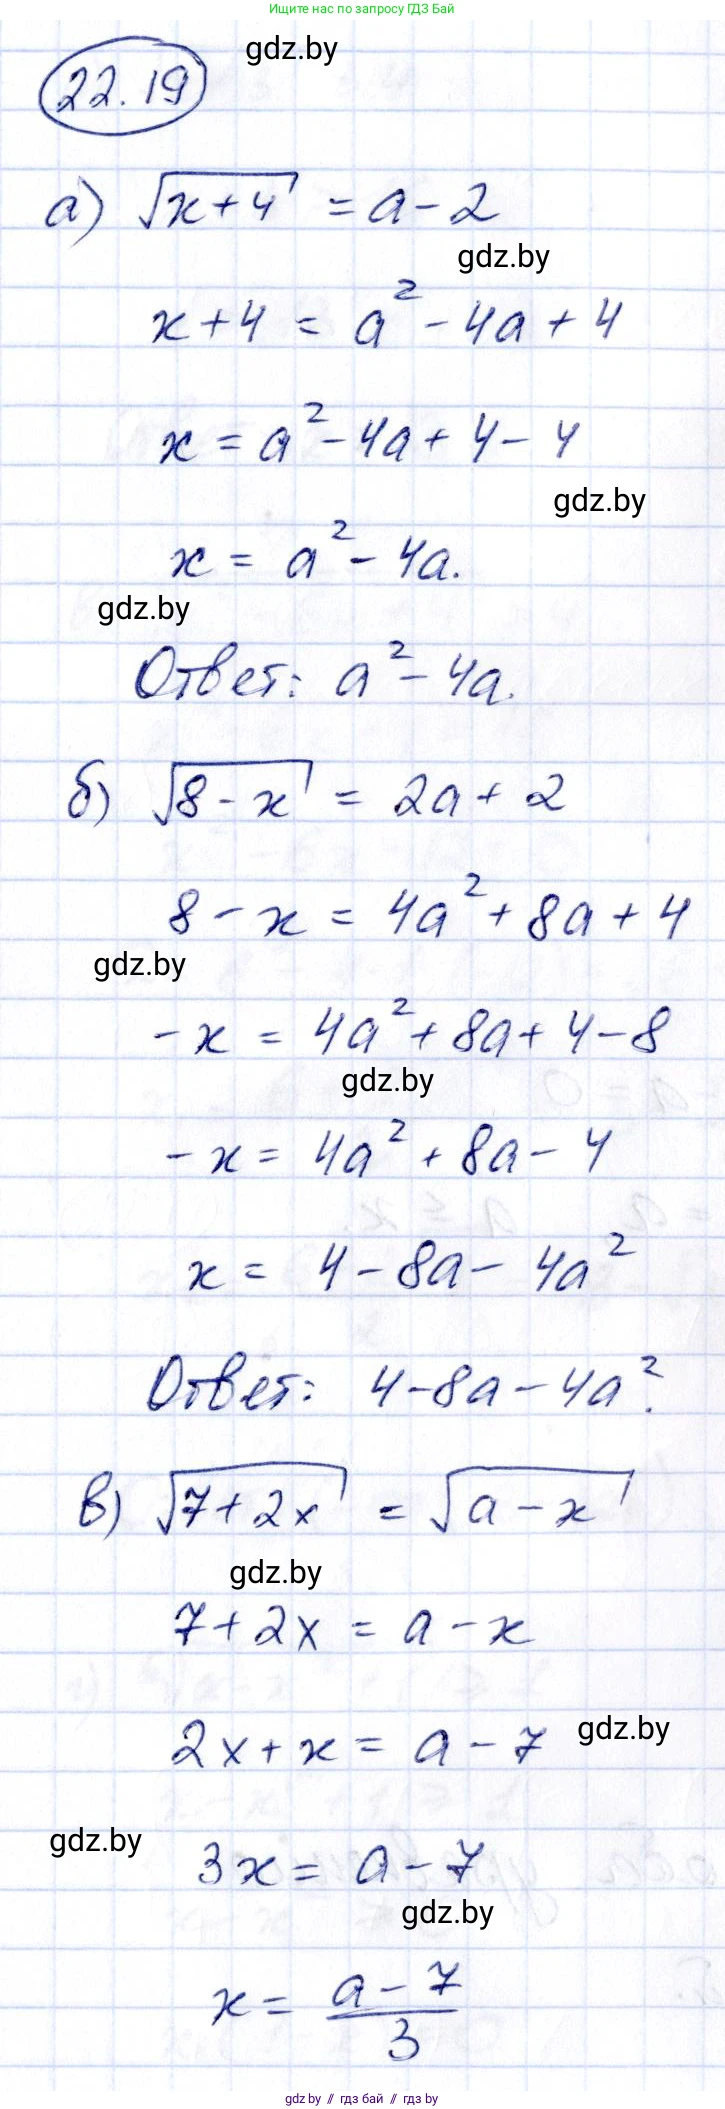 Ищите нас по запросу ГДЗ Бай
gdz.by
22.19
а) √(x+4) = a-2
gdz.by
x+4 = a²-4a+4
x = a²-4a+4-4
gdz.by
x = a²-4a.
gdz.by
Ответ: a²-4a.
б) √(8-x) = 2a+2
8-x = 4a²+8a+4
gdz.by
-x = 4a²+8a+4-8
gdz.by
-x = 4a²+8a-4
x = 4-8a-4a²
Ответ: 4-8a-4a².
в) √(7+2x) = √(a-x)
gdz.by
7+2x = a-x
2x+x = a-7
gdz.by
gdz.by
3x = a-7
gdz.by
x = (a-7)/3
gdz.by // гдз бай // гдз by